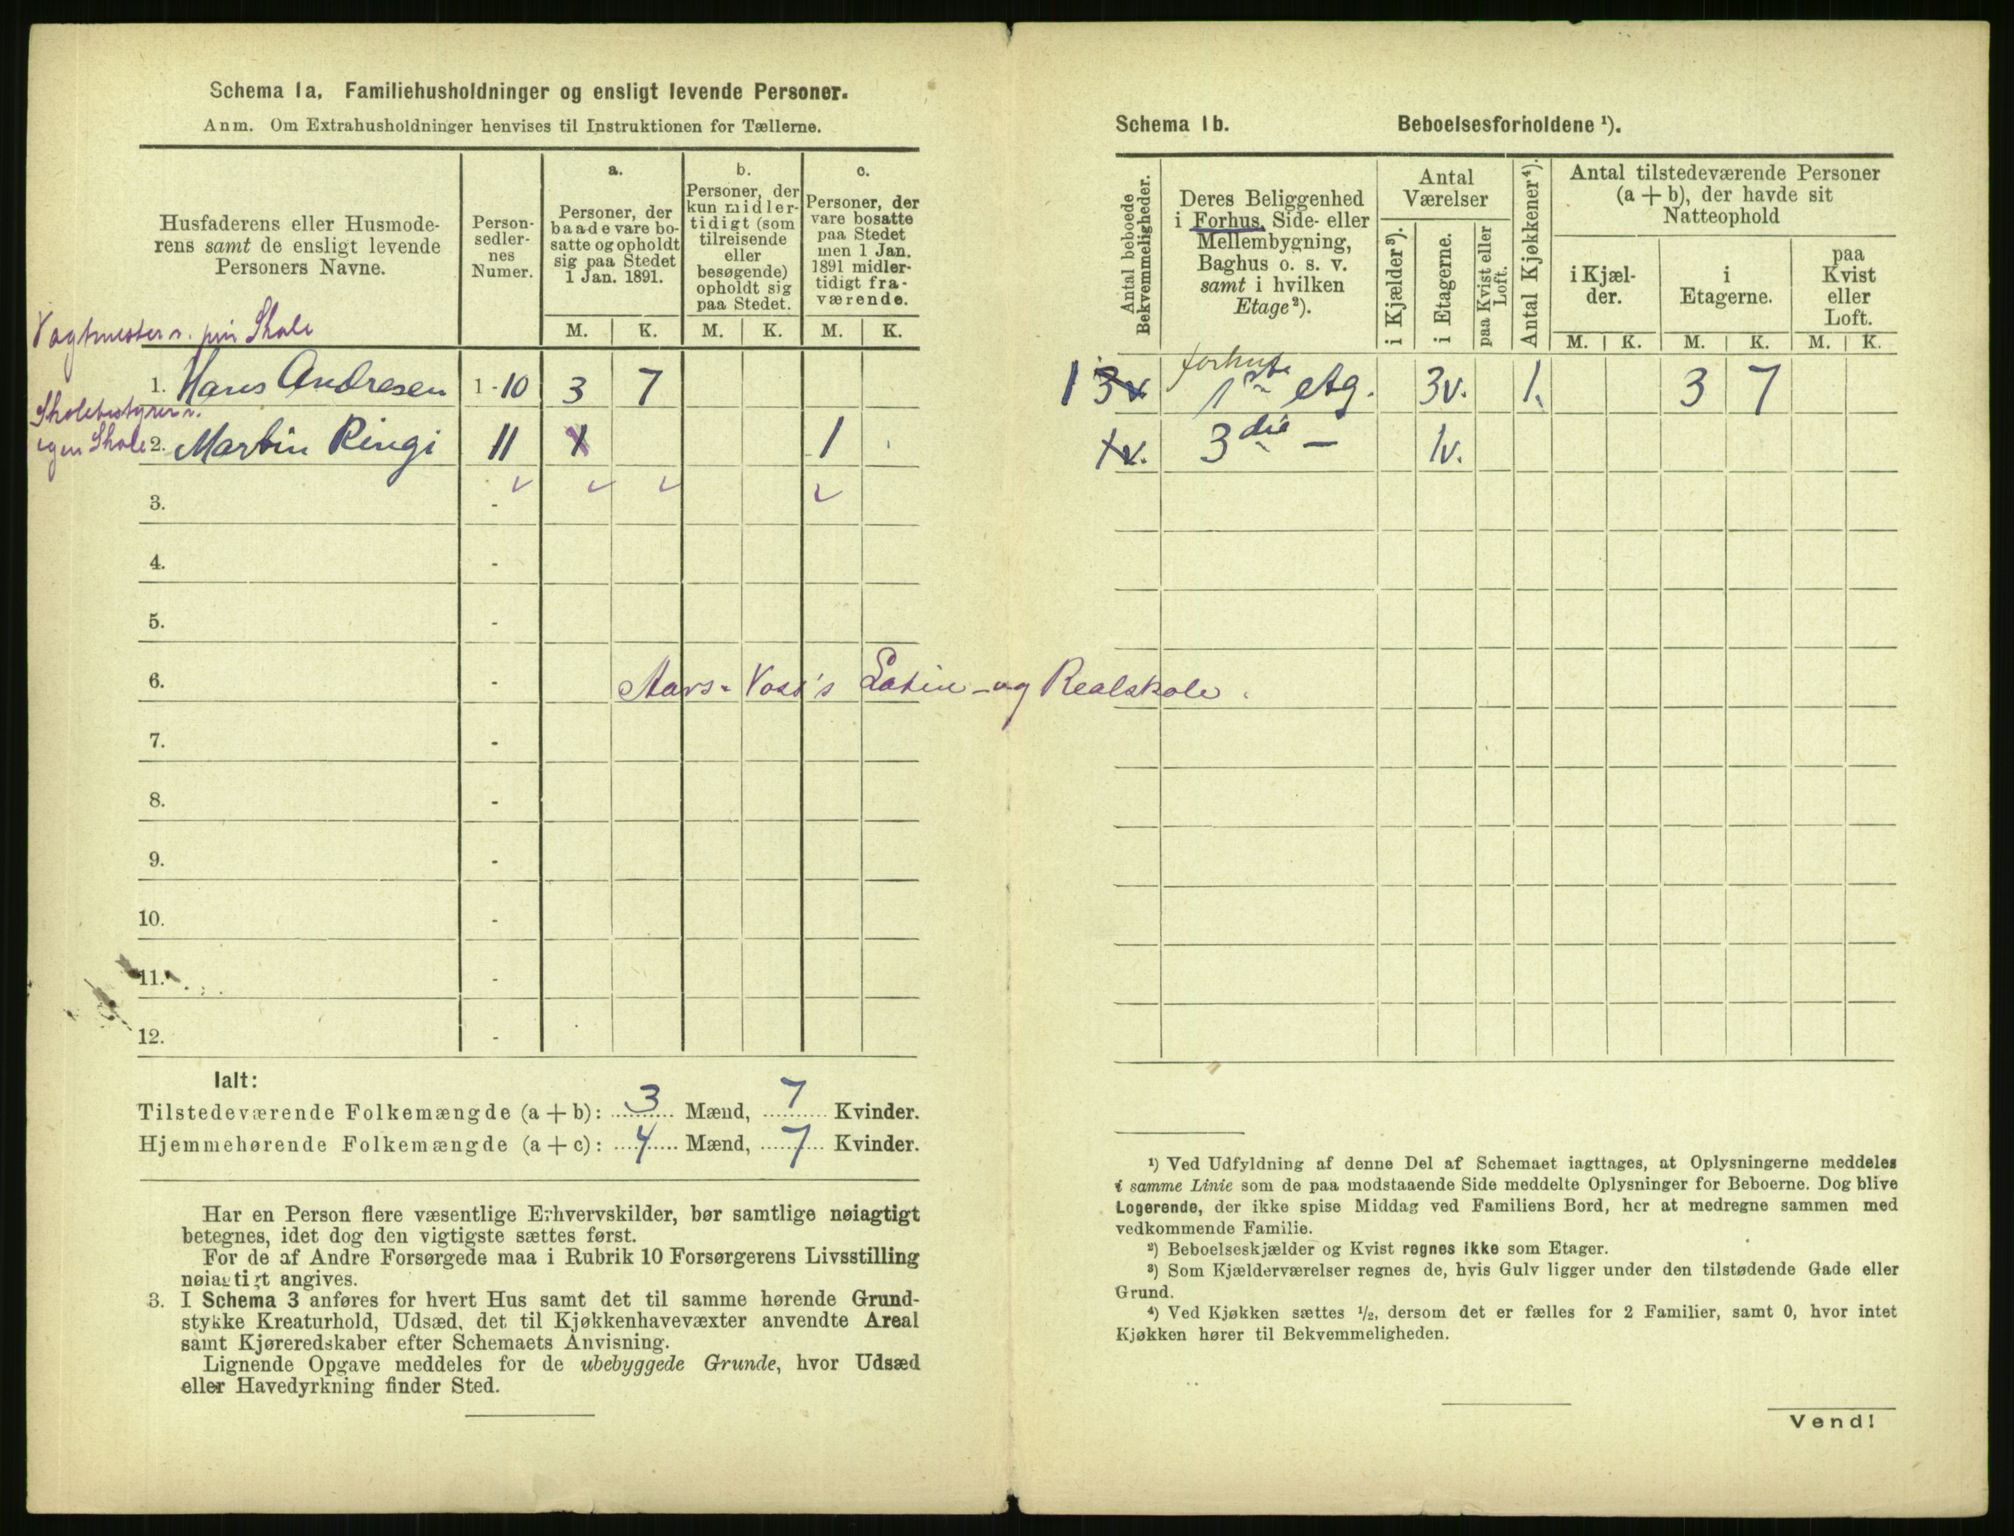 Schema 1a. Familiehusholdninger og ensligt levende Personer.
Anm. Om Extrahusholdninger henvises til Instruktionen for Tællerne.
Husfaderens eller Husmode-
rens samt de ensligt levende
Personers Navne.
Person-
sedler-
nes
Numer.
a.
Personer, der
baade vare bo-
satte og opholdt
sig paa Stedet
1 Jan. 1891.
b.
Personer, der
kun midler-
tidigt (som
tilreisende
eller
besøgende)
opholdt sig
paa Stedet.
c.
Personer, der
vare bosatte
paa Stedet
men 1 Jan.
1891 midler-
tidigt fra-
værende.
M. K. M. K. M. K.
Vagtmester v. priv Skole
1. Hans Andresen 1-10 3 7
Skolebestyrer v.
egen Skole
2. Martin Ringi 11 1 1
3. -
4. -
5. -
6. -
Aars & Voss's Latin- og Realskole.
7. -
8. -
9. -
10. -
11. -
12. -
Ialt:
Tilstedeværende Folkemængde (a + b): 3 Mænd, 7 Kvinder.
Hjemmehørende Folkemængde (a + c): 4 Mænd, 7 Kvinder.
Har en Person flere væsentlige Erhvervskilder, bør samtlige nøiagtigt
betegnes, idet dog den vigtigste sættes først.
For de af Andre Forsørgede maa i Rubrik 10 Forsørgerens Livsstilling
nøiagtigt angives.
3. I Schema 3 anføres for hvert Hus samt det til samme hørende Grund-
stykke Kreaturhold, Udsæd, det til Kjøkkenhavevæxter anvendte Areal
samt Kjøreredskaber efter Schemaets Anvisning.
Lignende Opgave meddeles for de ubebyggede Grunde, hvor Udsæd
eller Havedyrkning finder Sted.
Schema 1b. Beboelsesforholdene ¹).
Antal beboede
Bekvemmeligheder.
Deres Beliggenhed
i Forhus, Side- eller
Mellembygning,
Baghus o. s. v.
samt i hvilken
Etage²).
Antal
Værelser
i Kjælder³).
i Etagerne.
paa Kvist eller
Loft.
Antal Kjøkkener⁴).
Antal tilstedeværende Personer
(a + b), der havde sit
Natteophold
i Kjæl-
der.
i
Etagerne.
paa
Kvist
eller
Loft.
M. K. M. K. M. K.
forhus
1 3v 1ste etg. 3v. 1. 3 7
1v. 3die — 1v.
¹) Ved Udfyldning af denne Del af Schemaet iagttages, at Oplysningerne meddeles
i samme Linie som de paa modstaaende Side meddelte Oplysninger for Beboerne. Dog blive
Logerende, der ikke spise Middag ved Familiens Bord, her at medregne sammen med
vedkommende Familie.
²) Beboelseskjælder og Kvist regnes ikke som Etager.
³) Som Kjælderværelser regnes de, hvis Gulv ligger under den tilstødende Gade eller
Grund.
⁴) Ved Kjøkken sættes ½, dersom det er fælles for 2 Familier, samt 0, hvor intet
Kjøkken hører til Bekvemmeligheden.
Vend!